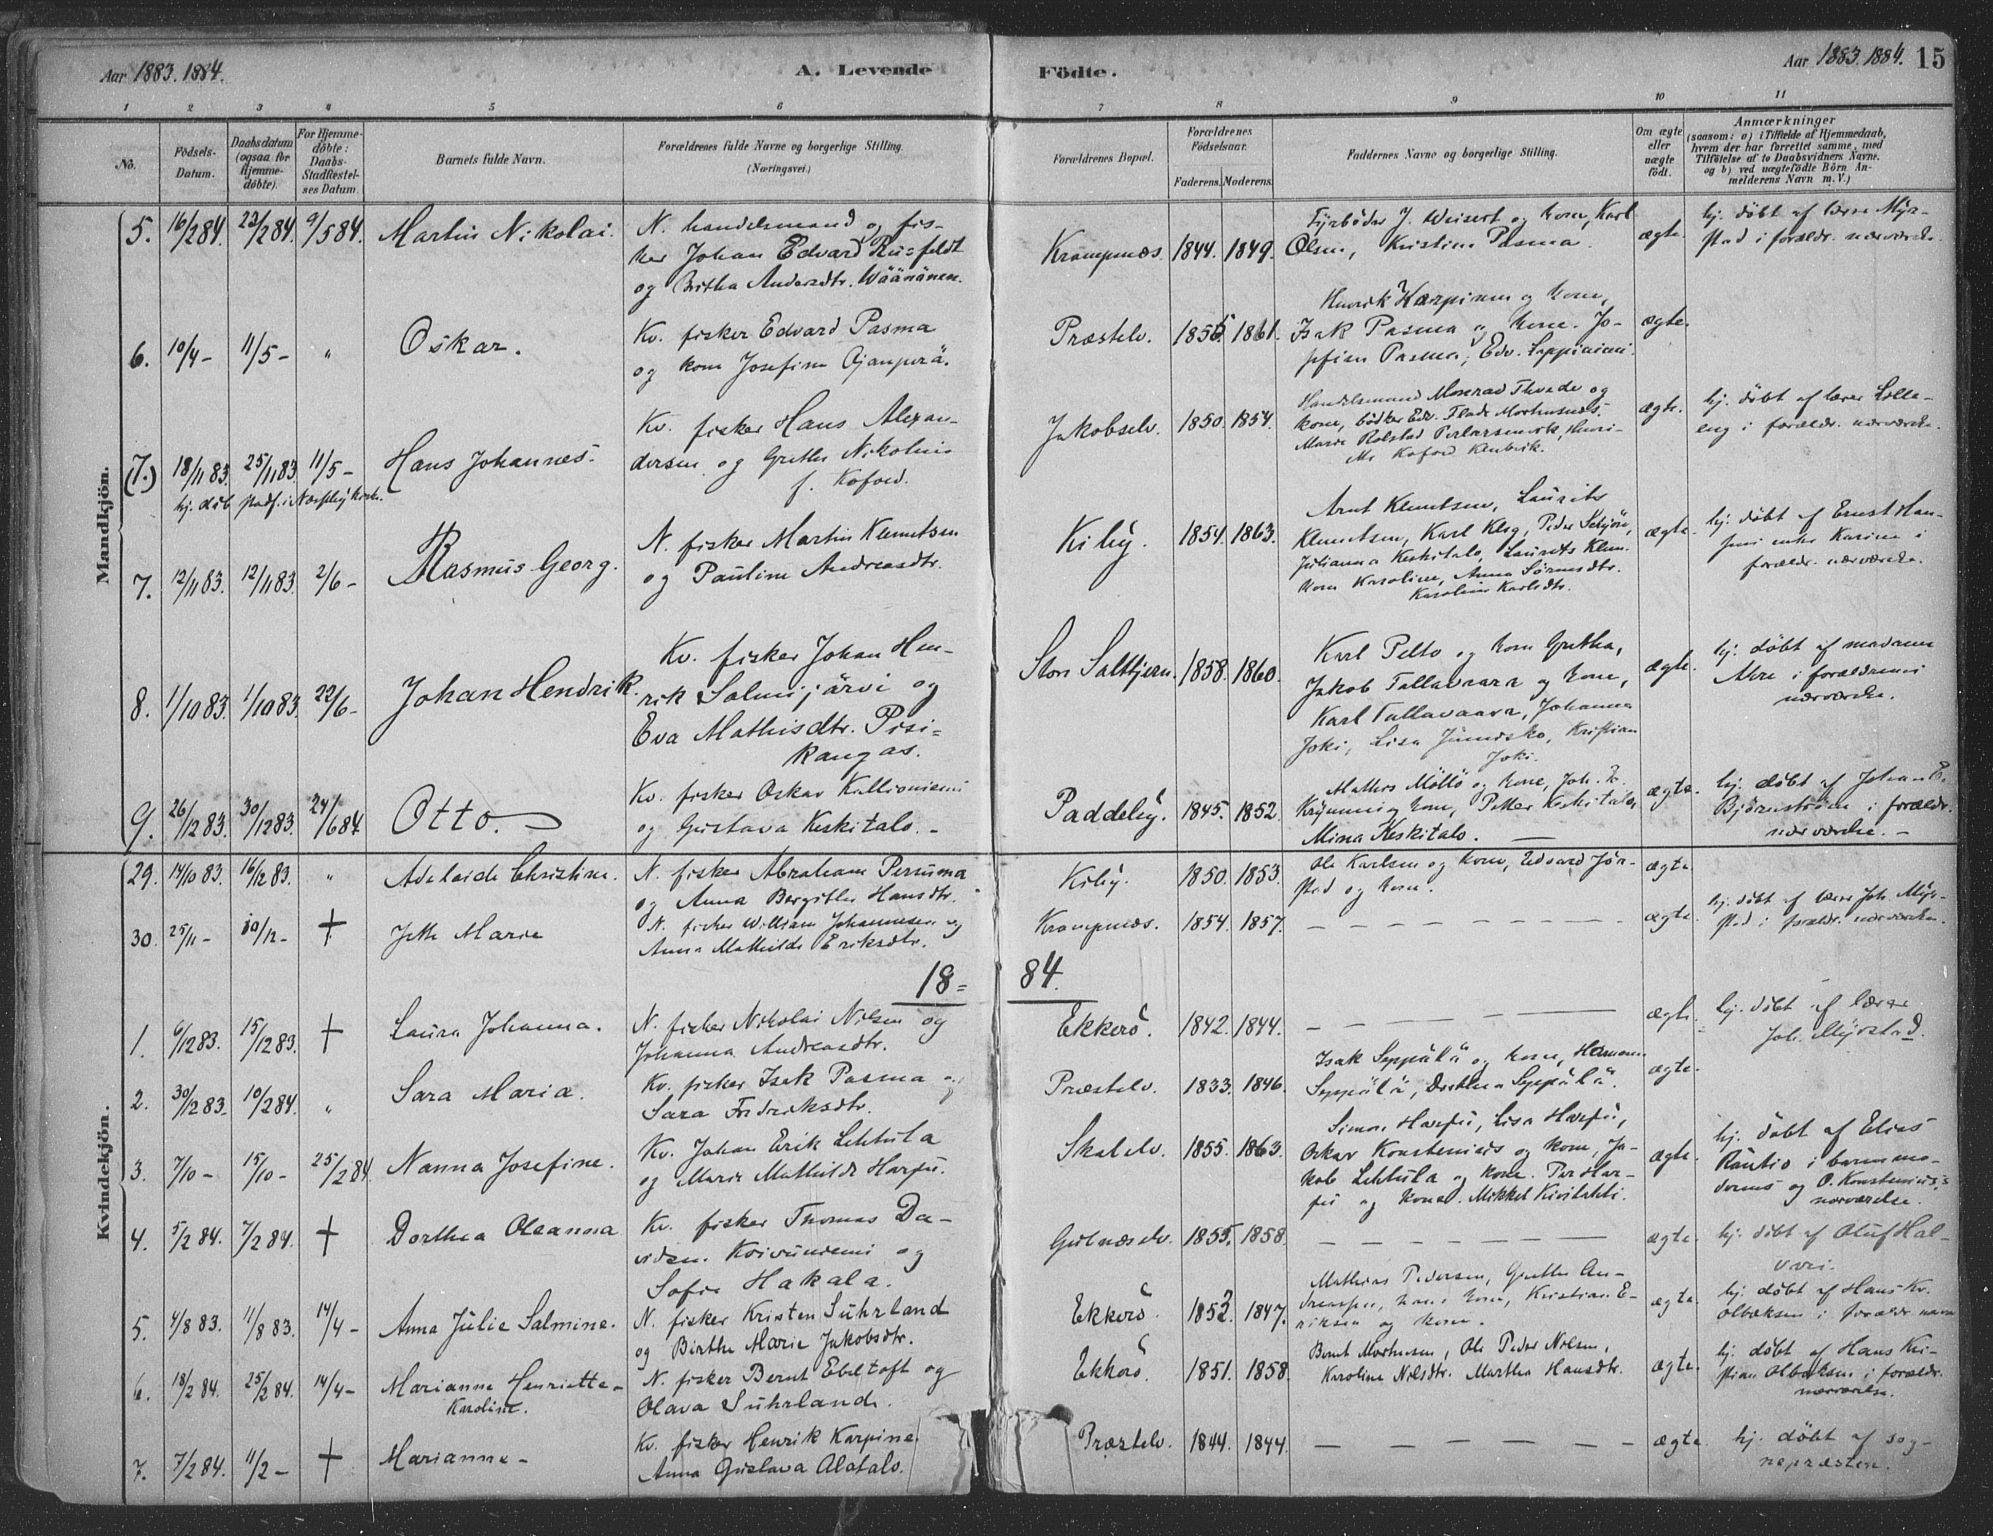 Aar 1883. 1884.
A. Levende
Födte.
Aar 1883. 1884. 15
1 2 3 4 5 6 7 8 9 10 11
No.
Födsels-Datum.
Daabsdatum (ogsaa for Hjemme-døbte).
For Hjemme-döbte: Daabs-Stadfæstel-ses Datum.
Barnets fulde Navn.
Forældrenes fulde Navne og borgerlige Stilling. (Næringsvei.)
Forældrenes Bopæl.
Forældrenes Födselsaar.
Faderens. Moderens.
Faddernes Navne og borgerlige Stilling.
Om ægte eller uægte födt.
Anmærkninger
(saasom: a) i Tilfælde af Hjemmedaab,
hvem der har forrettet samme, med
Tilföielse af to Daabsvidners Navne.
og b) ved uægtefödte Börn An-
melderens Navn m. V.)
Mandkjön.
5. 16/2 84. 23/2 84. 9/5 84. Martin Nikolai.
N. handelsmand og fis-
ker Johan Edvard Rusfeldt
og Britha Andersdtr. Wäänänen.
Krampenæs. 1844. 1849.
Fyrböder J. Weisert og kone, Karl
Olsen, Kristine Pasma.
ægte.
hj. döbt af lærer Myr-
stad i forældr. nærværelse.
6. 10/4 - 11/5 - " Oskar.
Kv. fisker Edvard Pasma
og kone Josefine Ojanperä.
Præstelv. 1855 1861.
Henrik Karpinen og kone,
Isak Pasma og kone. Jo-
sefine Pasma, Edv.
ægte.
(7.) 18/11 83. 25/11 83. 11/5 - Hans Johannes.
hj. döb. stadf. i Næsseby kirke.
Kv. fisker Hans Alexan-
dersen og Grethe Nikoline
f. Kofoed.
Jakobselv. 1850. 1854.
Handelsmand Monrad Thrade og
kone, bödker Edv.
Marie Rolstad
Kofoed
ægte.
hj. döbt af lærer Lille-
eng i forældr. nærværelse.
7. 12/11 83. 12/11 83. 2/6 - Rasmus Georg.
N. fisker Martin Klemetsen
og Pauline Andreasdtr.
Kiby. 1854. 1863.
Arnt Klemetsen, Laurits
Klemetsen, Karl Klerg, Peder
Julianna Keskitalo, Laurits Klem.
kone Karoline, Anna Sörensdtr.
Karoline Karlsdtr.
ægte.
hj. döbt af Ernst Han-
sens enke Karine i
forældr. nærværelse.
8. 1/10 83. 1/10 83. 22/6 - Johan Hendrik.
Kv. fisker Johan Hen-
rik Salmijärvi og
Eva Mathisdtr. Pisi-
kangas.
Store Saltjern 1858. 1860.
Karl Pelto og kone Gretha,
Jakob Tallavaara og kone,
Karl Tallavaara, Johanna
Joki, Lisa Junnisko, Kristian
Joki.
ægte.
hj. döbt af madamme
More i forældrenes
nærværelse.
9. 26/12 83. 30/12 83. 24/6 84. Otto.
Kv. fisker Oskar Kallioniemi
og Gustava Keskitalo. -
Paddeby. 1845. 1852.
Mathis Möllö og kone, Joh.
og kone, Petter Keskitalo,
Mina Keskitalo.
ægte.
hj. döbt af Johan E.
Björnström i forældr.
nærværelse. -
Kvindekjön.
29. 14/10 83. 16/12 83. " Adelaide Christine.
N. fisker Abraham Persuma
og Anna Bergitte Hansdtr.
Kiby. 1850. 1853.
Ole Karlsen og kone, Edvard Jör-
stad og kone.
ægte
30. 25/11 - 30/12 - † Jette Marie
N. fisker William Johannesen og
Anna Mathilde Eriksdtr.
Krampenæs. 1854. 1857.
ægte.
hj. döbt af lærer Joh. Myr-
stad i forældr. nærværelse.
18 = 84.
1. 6/12 83. 15/12 83. † Laura Johanna.
N. fisker Nikolai Nilsen og
Johanna Andreasdtr.
Ekkerö. 1842. 1844.
ægte.
hj. döbt af lærer
Joh. Myrstad.
2. 30/12 83. 10/2 84. " Sara Maria.
Kv. fisker Isak Pasma og
Sara Fredriksdtr.
Præstelv. 1833. 1846.
Isak Seppälä og kone, Herman
Seppälä, Dorthea Seppälä.
ægte.
3. 7/10 - 15/10 - 25/2 84. Nanna Josefine.
Kv. Johan Erik Lehtula
og Marie Mathilde Harju.
Skalelv. 1855. 1863.
Simon Harju, Lisa Harju,
Oskar Konstenius og kone, Ja-
kob Lehtula og kone. Per Har-
ju og kone. Mikkel Kivilehti.
ægte.
hj. döbt af Elias
Rautio i barnemo-
derens og O. Konstenius's
nærværelse.
4. 5/2 84. 7/2 84. † Dorthea Oleanna
Kv. fisker Thomas Da-
vidsen Koivuniemi og
Sofie Hakala.
Golnæselv. 1855. 1858.
ægte.
hj. döbt af Oluf Hal-
vari.
5. 4/8 83. 11/8 83. 14/4 - Anna Julie Salmine.
N. fisker Kristen Suhrland
og Birthe Marie Jakobsdtr.
Ekkerö. 1853. 1847.
Mathias Pedersen, Grethe An-
dreasen, hans kone, Kristian E-
riksen og kone.
ægte.
hj. döbt af Hans Kr.
Olbæksen i forældr. nærv.
6. 18/2 84. 25/2 84. 14/4 - Marianne Henriette
Karoline.
N. fisker Bernt Ebeltoft og
Olava Suhrland.
Ekkerö. 1851. 1858.
Bernt Mortensen, Ole Peder Nilsen,
Karoline Nilsdtr. Marthea Hansdtr.
ægte.
hj. döbt af Hans Kri-
stian Olbæksen i forældr.
nærværelse.
7. 7/2 84. 11/2 - † Marianne -
Kv. fisker Henrik Karpine.
Anna Gustava Alatalo.
Præstelv. 1844. 1844.
ægte.
hj. döbt af sog-
nepræsten.